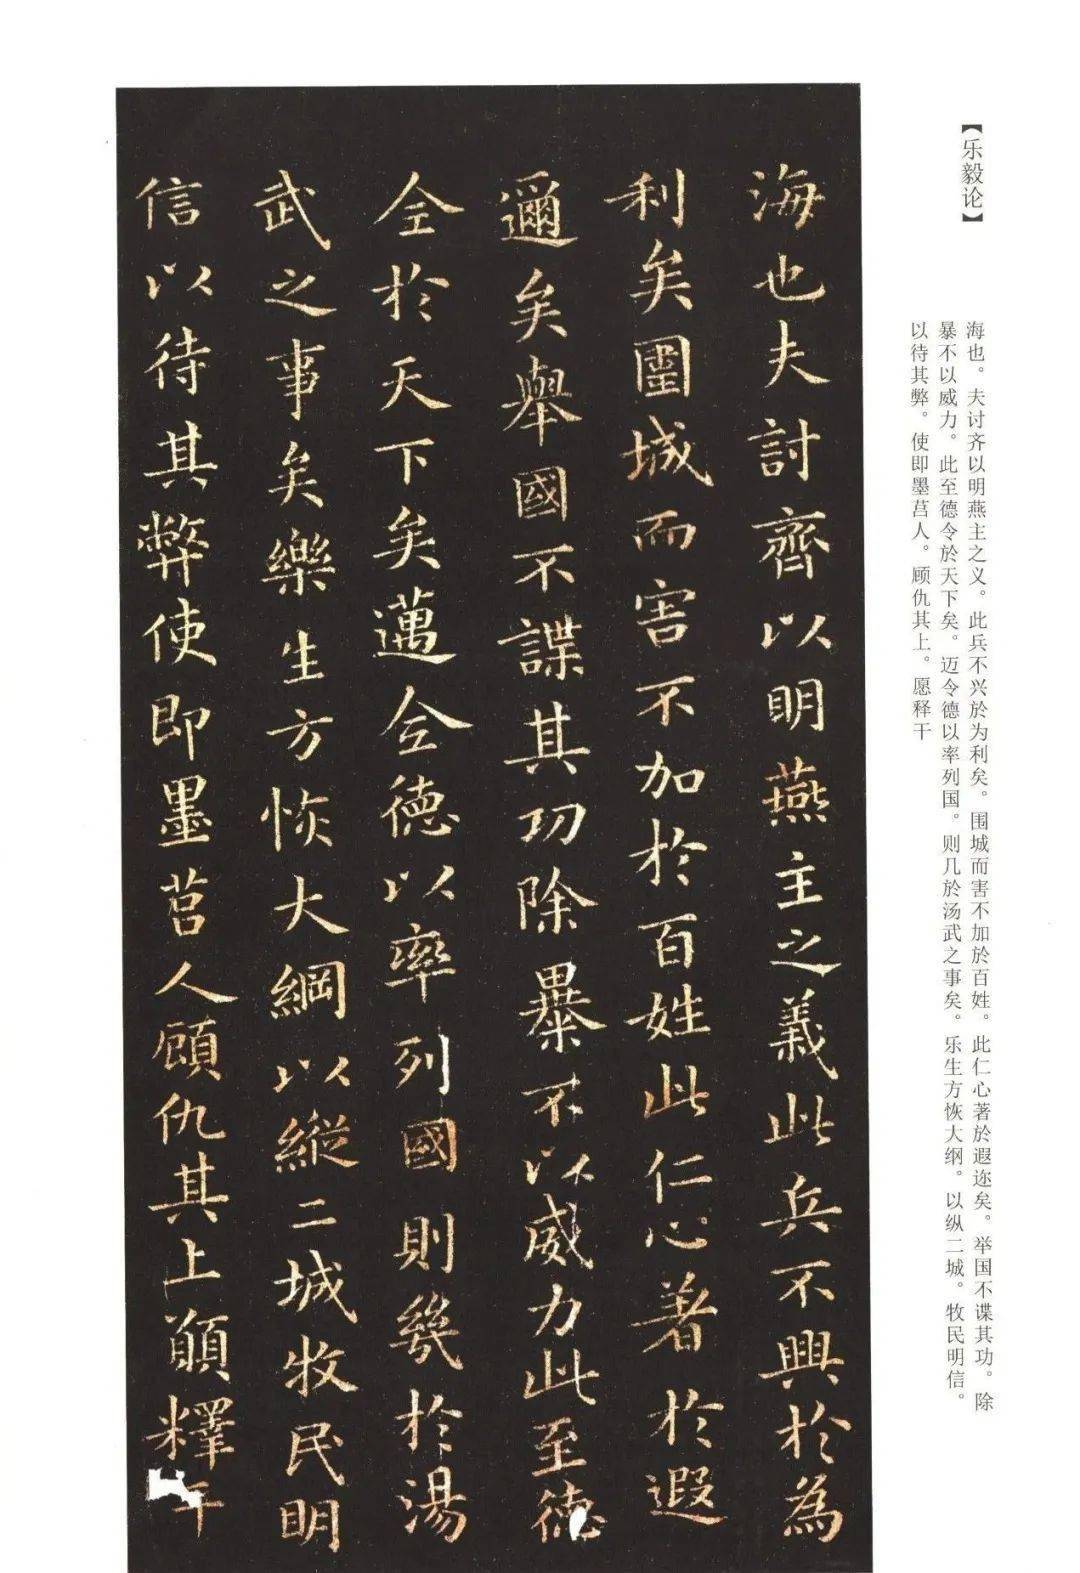 【乐毅论】
海也。夫讨齐以明燕主之义。此兵不兴於为利矣。围城而害不加於百姓。此仁心著於遐迩矣。举国不谍其功。除
暴不以威力。此至德令於天下矣。迈令德以率列国。则几於汤武之事矣。乐生方恢大纲。以纵二城。牧民明信。
以待其弊。使即墨莒人。顾仇其上。愿释干
海也夫討齊以明燕主之義此兵不興於為
利矣圍城而害不加於百姓此仁心著於遐
邇矣舉國不諜其功除暴不以威力此至德
全於天下矣邁全德以率列國則幾於湯
武之事矣樂生方恢大綱以縱二城牧民明
信以待其弊使即墨莒人顧仇其上願釋干